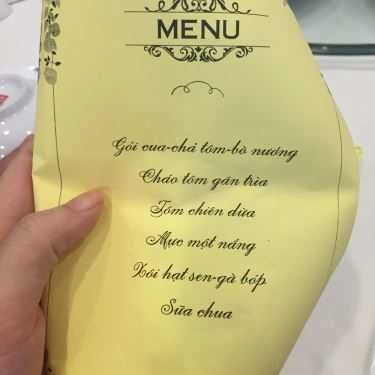 MENU
Gỏi cua-chả tôm-bò nướng
Cháo tôm gân trìa
Tôm chiên dừa
Mực một nắng
Xôi hạt sen-gà bóp
Sữa chua